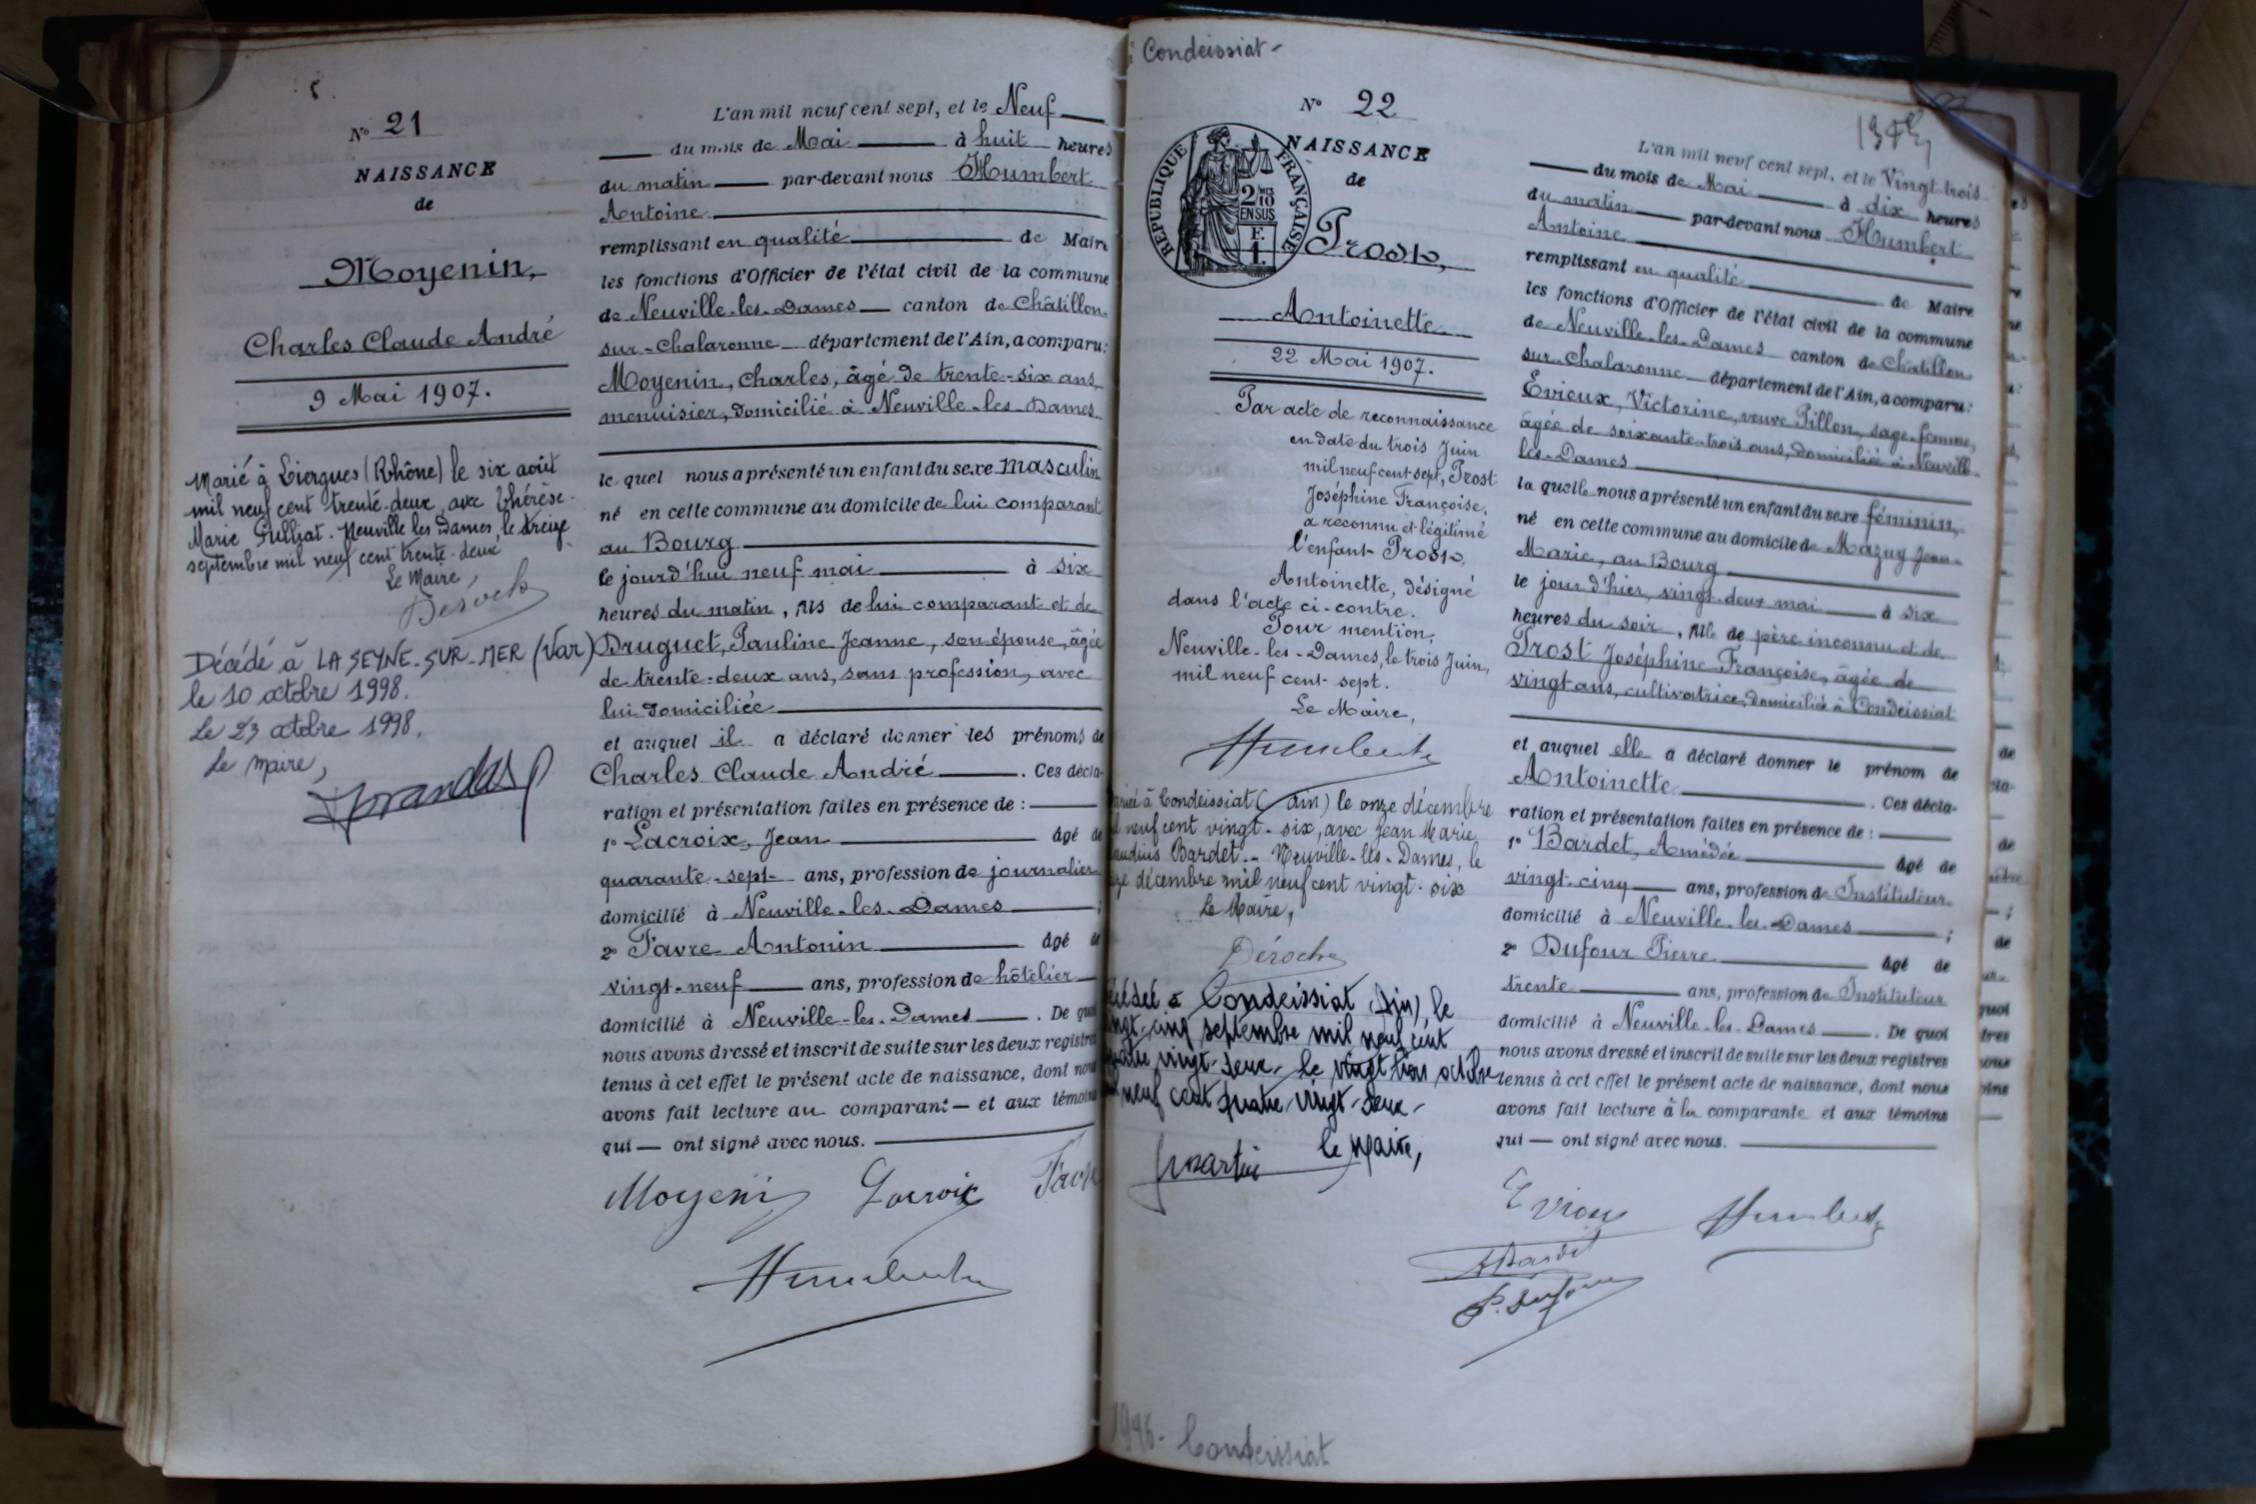 Nº 21
NAISSANCE
de
Moyenin,
Charles Claude André
9 Mai 1907.
Marié à Liergues (Rhône) le six août
mil neuf cent trente-deux avec Thérèse
Marie Gulliat. Neuville les Dames, le treize
septembre mil neuf cent trente-deux
Le Maire,
Décédé à LA SEYNE-SUR-MER (Var)
le 10 octobre 1998.
Le 23 octobre 1998.
Le Maire,
L'an mil neuf cent sept, et le Neuf
du mois de Mai à huit heures
du matin par-devant nous Humbert
Antoine
remplissant en qualité de Maire
les fonctions d'Officier de l'état civil de la commune
de Neuville-les-Dames canton de Châtillon-
sur-Chalaronne département de l'Ain, a comparu:
Moyenin, Charles, âgé de trente-six ans,
menuisier, domicilié à Neuville-les-Dames
le quel nous a présenté un enfant du sexe masculin
né en cette commune au domicile de lui comparant
au Bourg
le jourd'hui neuf mai à six
heures du matin, fils de lui comparant et de
Druguet, Pauline Jeanne, son épouse, âgée
de trente-deux ans, sans profession, avec
lui domiciliée
et auquel il a déclaré donner les prénoms de
Charles Claude André. Ces décla-
ration et présentation faites en présence de :
1º Lacroix, Jean âgé de
quarante-sept ans, profession de journalier
domicilié à Neuville-les-Dames ;
2º Favre Antonin âgé de
vingt-neuf ans, profession de hôtelier
domicilié à Neuville-les-Dames. De quoi
nous avons dressé et inscrit de suite sur les deux registres
tenus à cet effet le présent acte de naissance, dont nous
avons fait lecture au comparant — et aux témoins
qui — ont signé avec nous.
Moyenin Lacroix Favre
Humbert
Condeissiat-
Nº 22
NAISSANCE
de
RÉPUBLIQUE FRANÇAISE
2/10
EN SUS
F.
1.
Prost,
Antoinette
22 Mai 1907.
Par acte de reconnaissance
en date du trois Juin
mil neuf cent sept, Prost
Joséphine Françoise,
a reconnu et légitimé
l'enfant Prost,
Antoinette, désigné
dans l'acte ci-contre.
Pour mention,
Neuville-les-Dames, le trois Juin,
mil neuf cent sept.
Le Maire,
Humbert
à Condeissiat (Ain) le onze décembre
neuf cent vingt-six, avec Jean Marie
Bardet.- Neuville-les-Dames, le
décembre mil neuf cent vingt-six
Le Maire,
Déroche
à Condeissiat (Ain), le
vingt-cinq septembre mil neuf cent
quatre vingt-deux- le vingt trois octobre
neuf cent quatre-vingt-deux-
le Maire,
L'an mil neuf cent sept, et le Vingt-trois
du mois de Mai à dix heures
du matin par-devant nous Humbert
Antoine
remplissant en qualité de Maire
les fonctions d'Officier de l'état civil de la commune
de Neuville-les-Dames canton de Châtillon
sur-Chalaronne département de l'Ain, a comparu:
Evieux, Victorine, veuve Pillon, sage-femme,
âgée de soixante-trois ans, domiciliée à Neuville-
les-Dames
la quelle nous a présenté un enfant du sexe féminin,
né en cette commune au domicile de Mazuy Jean-
Marie, au Bourg
le jour d'hier, vingt-deux mai à six
heures du soir, fille de père inconnu et de
Prost Joséphine Françoise, âgée de
vingt ans, cultivatrice, domiciliée à Condeissiat
et auquel elle a déclaré donner le prénom de
Antoinette. Ces décla-
ration et présentation faites en présence de :
1º Bardet, Amédée âgé de
vingt-cinq ans, profession de Instituteur
domicilié à Neuville-les-Dames ;
2º Dufour Pierre âgé de
trente ans, profession de Instituteur
domicilié à Neuville-les-Dames. De quoi
nous avons dressé et inscrit de suite sur les deux registres
tenus à cet effet le présent acte de naissance, dont nous
avons fait lecture à la comparante et aux témoins
qui — ont signé avec nous.
Evieux Humbert
ABardet
P. Dufour
1996- Condeissiat